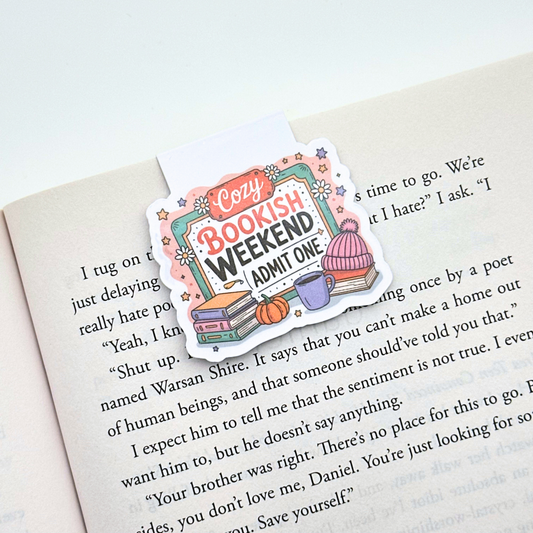 Cozy
BOOKISH
WEEKEND
ADMIT ONE
time to go. We're
I tug on
t I hate?" I ask. "I
just delaying
really hate po
once by a poet
"Yeah, I kn
"Shut up.
named Warsan Shire. It says that you can't make a home out
of human beings, and that someone should've told you that."
I expect him to tell me that the sentiment is not true. I even
want him to, but he doesn't say anything.
"Your brother was right. There's no place for this to go. B
sides, you don't love me, Daniel. You're just looking for so
you. Save yourself."